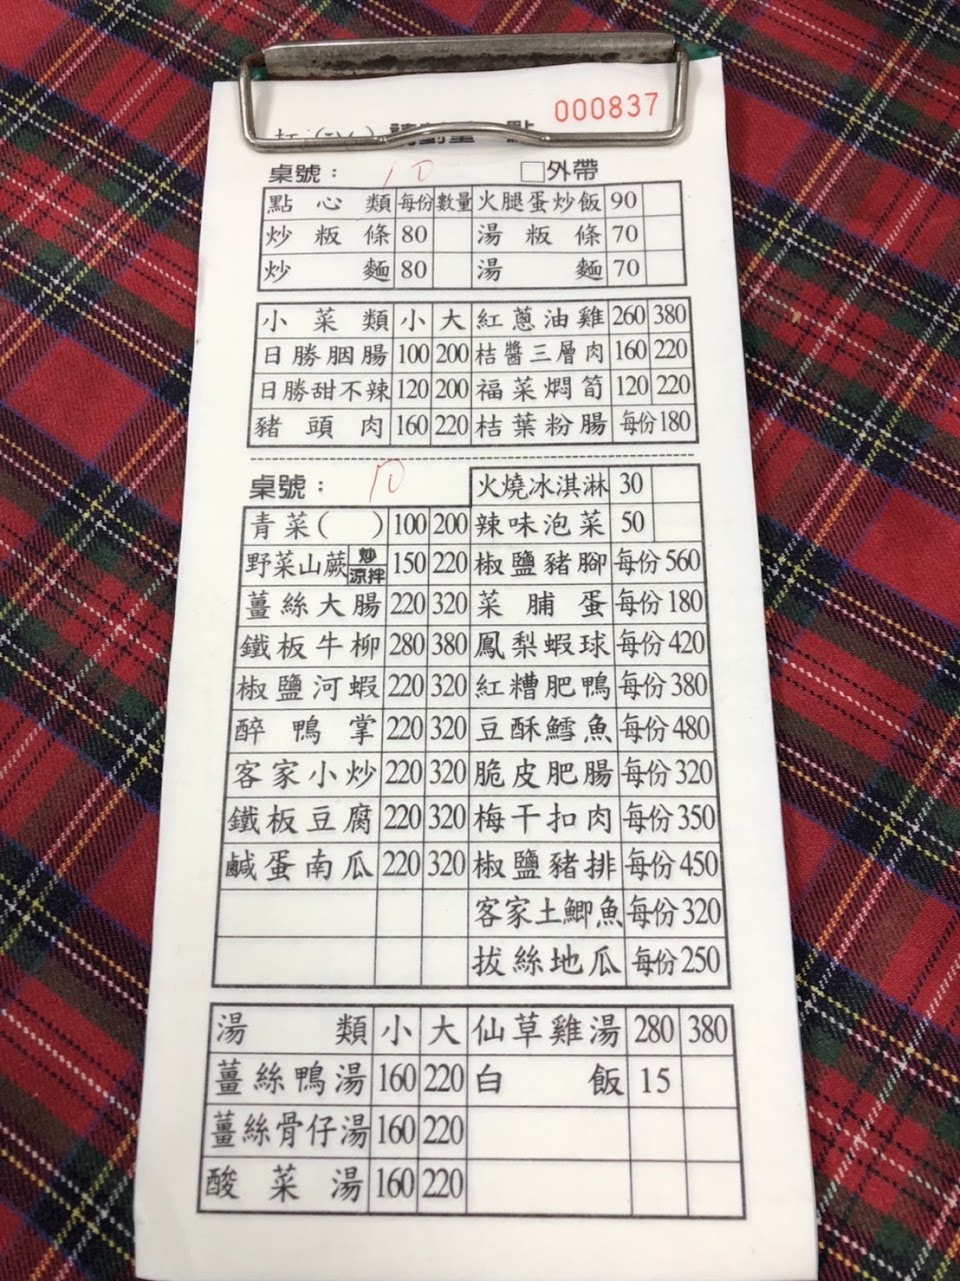 000837
桌號： 10 □外帶
點心類 每份 數量 火腿蛋炒飯 90
炒粄條 80 湯粄條 70
炒麵 80 湯麵 70
小菜類 小 大 紅蔥油雞 260 380
日勝胭腸 100 200 桔醬三層肉 160 220
日勝甜不辣 120 200 福菜燜筍 120 220
豬頭肉 160 220 桔葉粉腸 每份180
桌號： 10 火燒冰淇淋 30
青菜( ) 100 200 辣味泡菜 50
野菜山蕨 炒 涼拌 150 220 椒鹽豬腳 每份560
薑絲大腸 220 320 菜脯蛋 每份180
鐵板牛柳 280 380 鳳梨蝦球 每份420
椒鹽河蝦 220 320 紅糟肥鴨 每份380
醉鴨掌 220 320 豆酥鱈魚 每份480
客家小炒 220 320 脆皮肥腸 每份320
鐵板豆腐 220 320 梅干扣肉 每份350
鹹蛋南瓜 220 320 椒鹽豬排 每份450
客家土鯽魚 每份320
拔絲地瓜 每份250
湯類 小 大 仙草雞湯 280 380
薑絲鴨湯 160 220 白飯 15
薑絲骨仔湯 160 220
酸菜湯 160 220